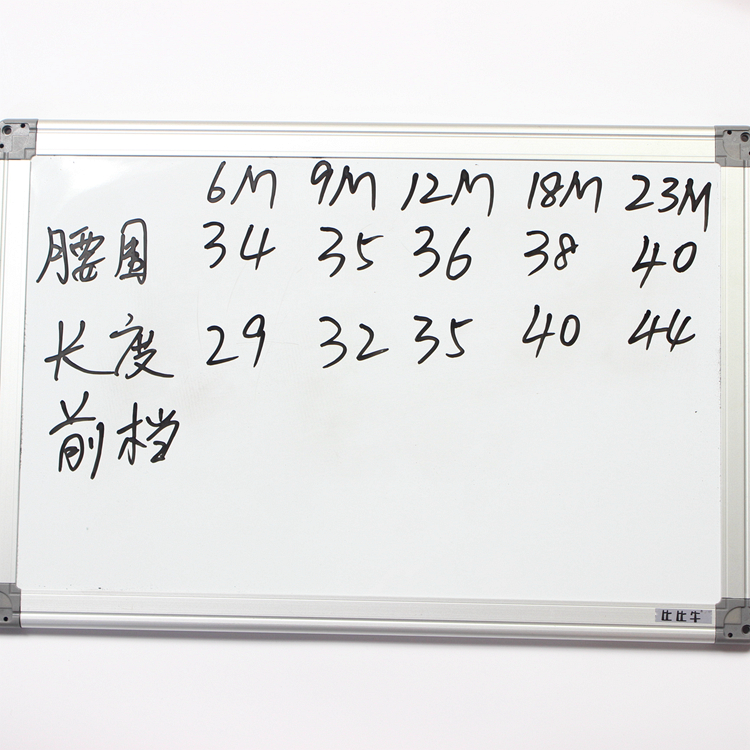 6M 9M 12M 18M 23M
腰围 34 35 36 38 40
长度 29 32 35 40 44
前档
比比牛